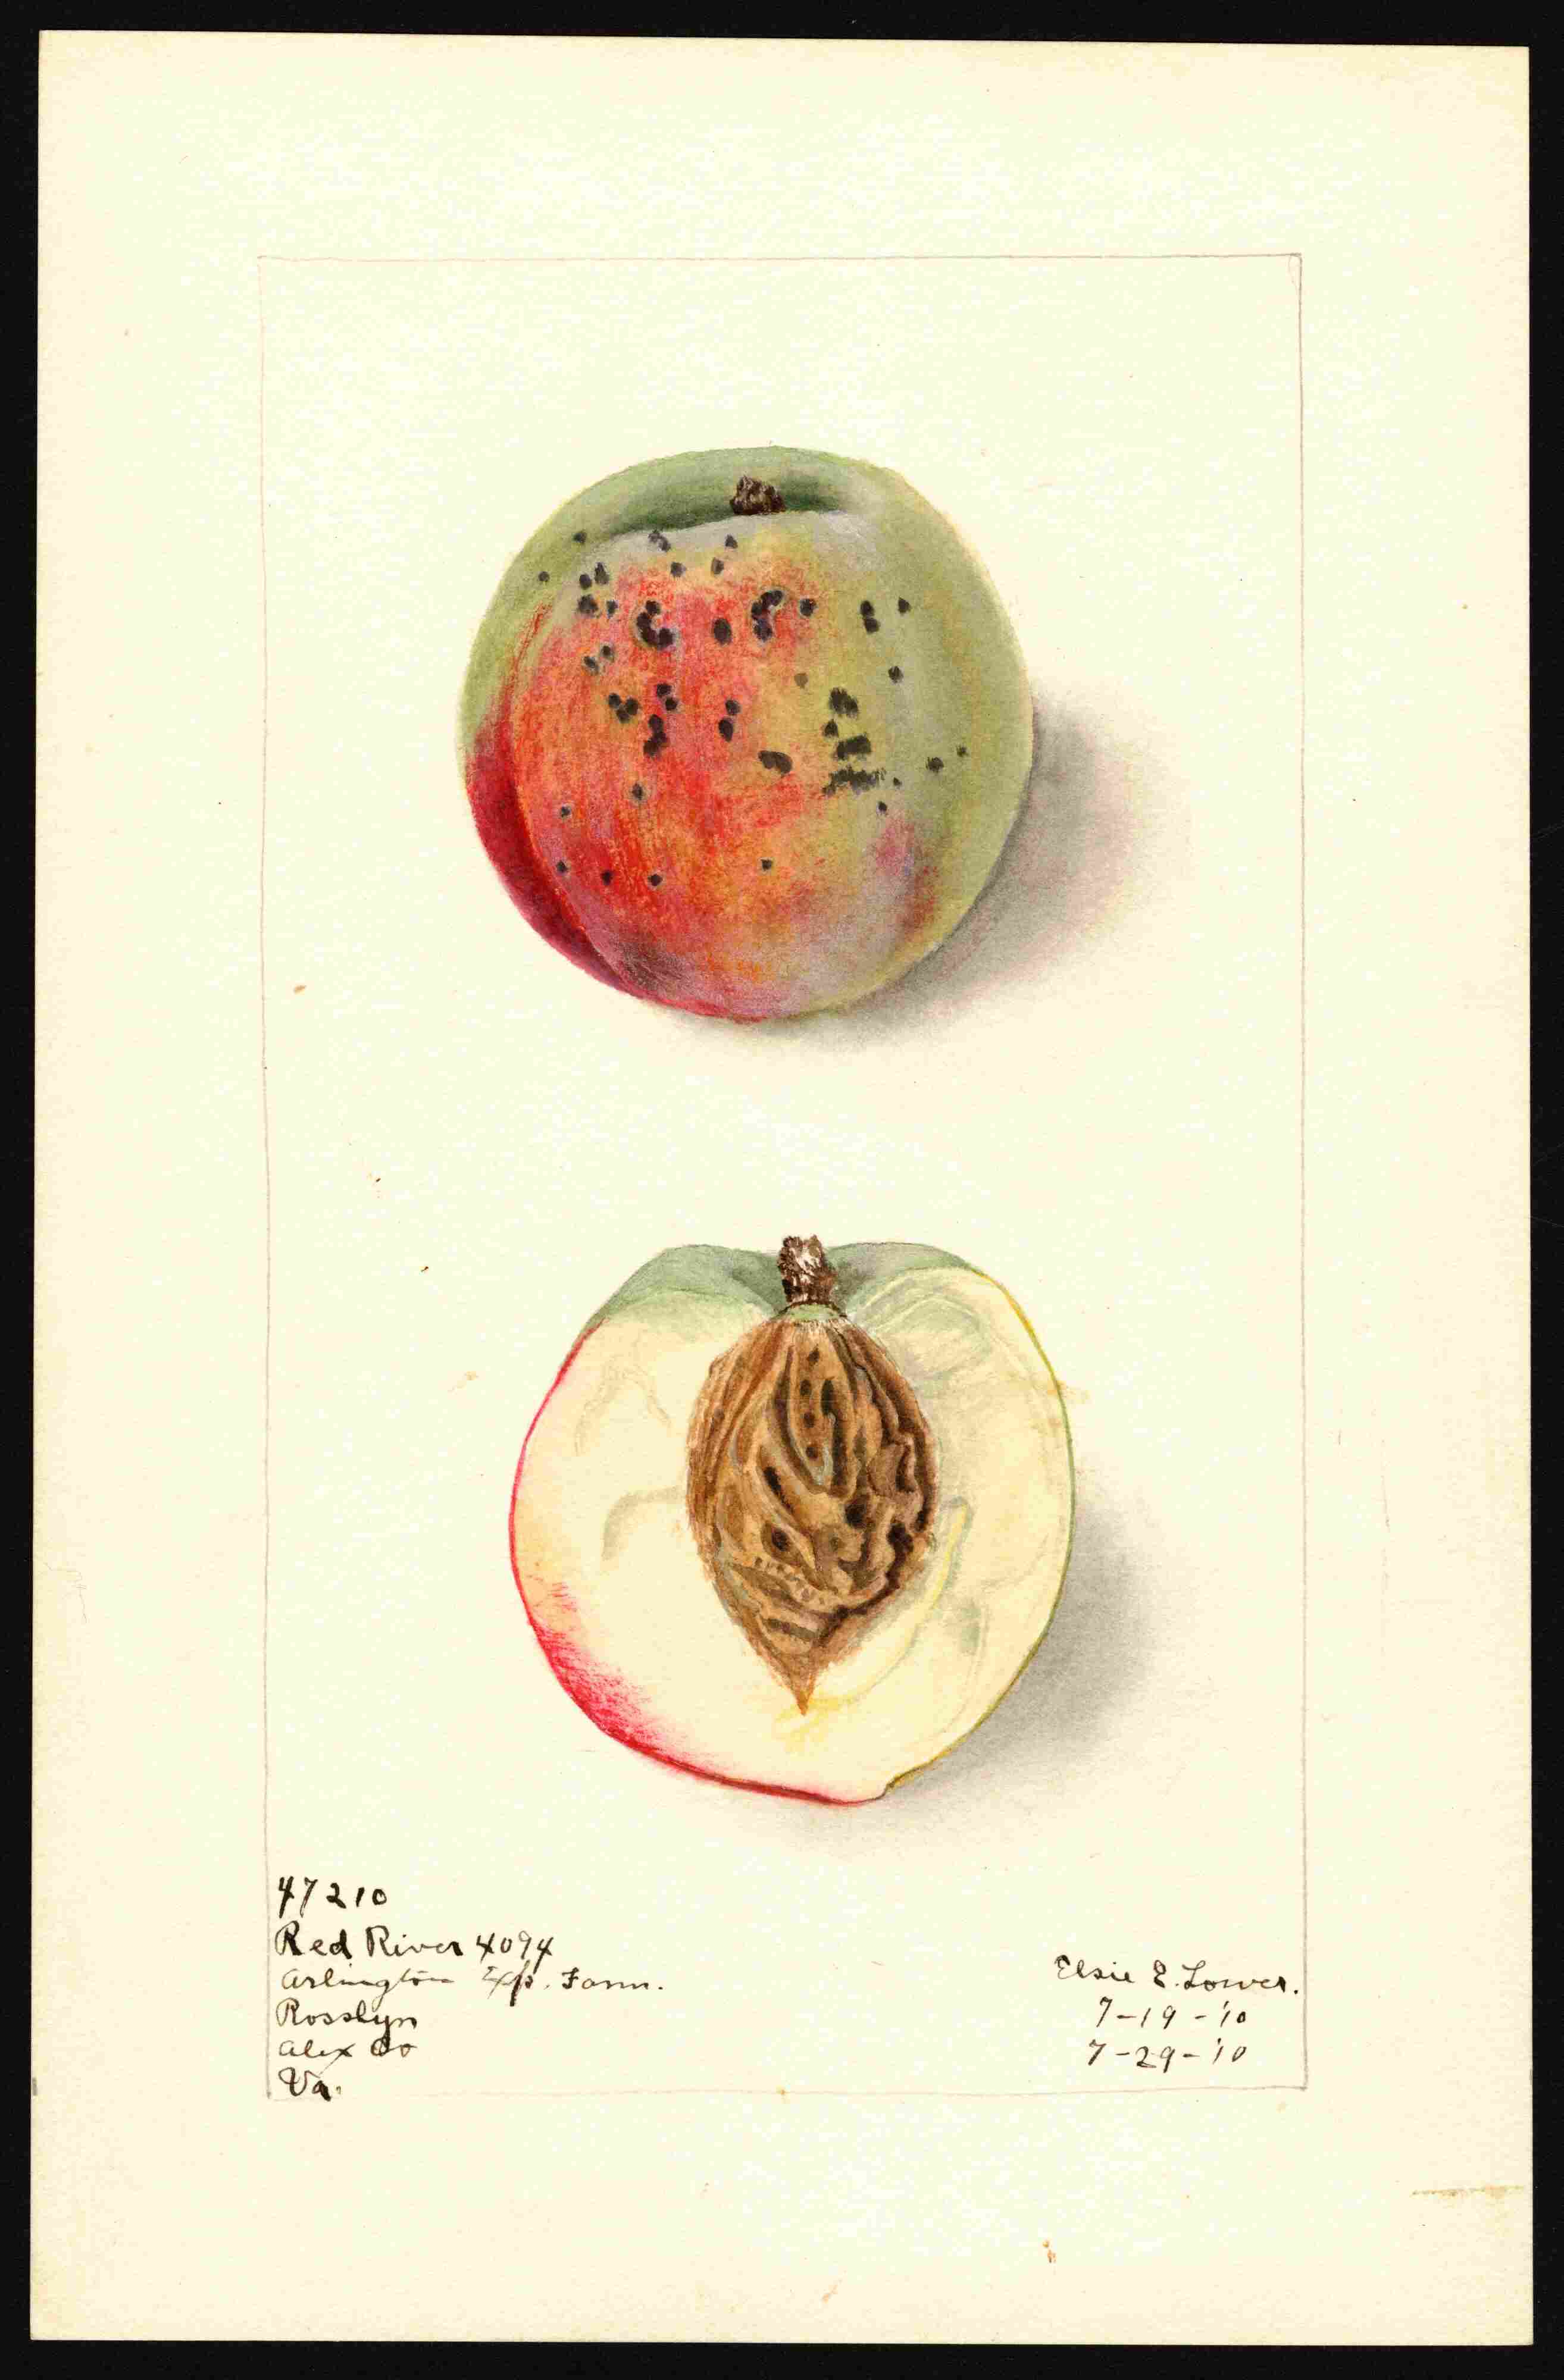 47210
Red River 4094
Arlington Exp. Farm.
Rosslyn
Alex Co
Va.
Elsie E. Lower.
7-19-'10
7-29-'10